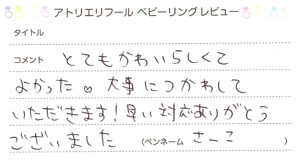 アトリエリフール ベビーリングレビュー
タイトル
コメント とてもかわいらしくて
よかった。大事につかわして
いただきます！早い対応ありがとう
ございました (ペンネーム さーこ )